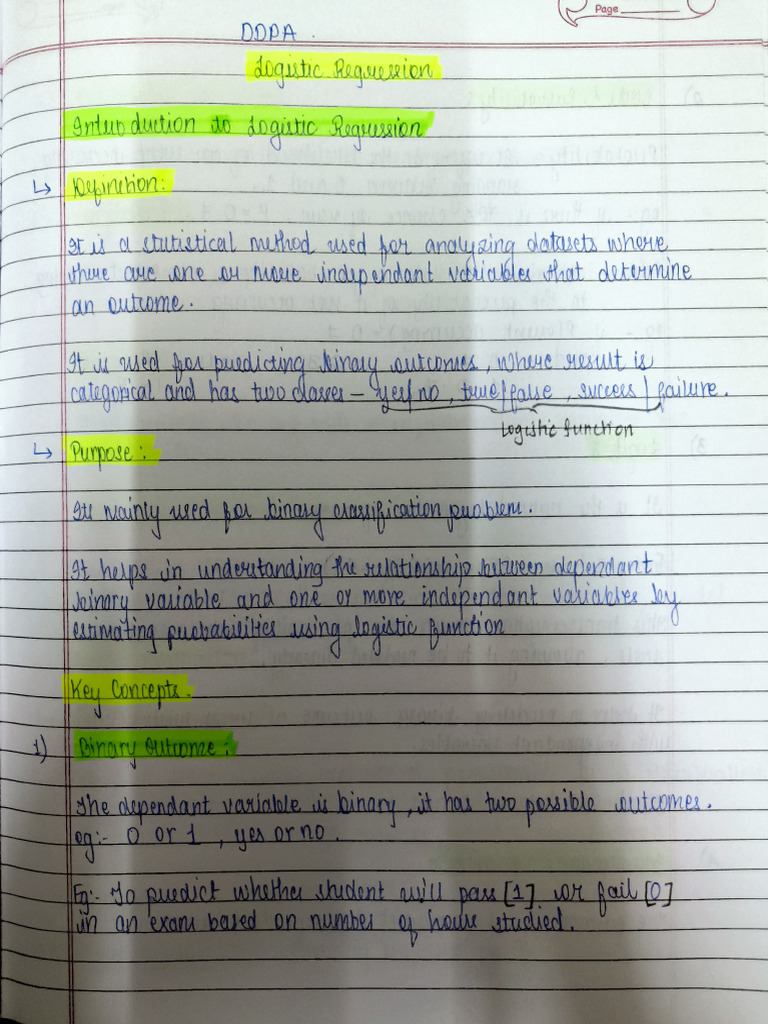 Page
DDPA.
Logistic Regression
Introduction to Logistic Regression
↳ Definition:
It is a statistical method used for analyzing datasets where
there are one or more independant variables that determine
an outcome.
It is used for predicting binary outcomes, where result is
categorical and has two classes – yes/no, true/false, success/failure.
Logistic function
↳ Purpose:
Its mainly used for binary classification problem.
It helps in understanding the relationship between dependant
binary variable and one or more independant variables by
estimating probabilities using logistic function
Key Concepts.
1) Binary Outcome:
The dependant variable is binary, it has two possible outcomes.
eg:- 0 or 1, yes or no.
Eg:- To predict whether student will pass [1] or fail [0]
in an exam based on number of hours studied.